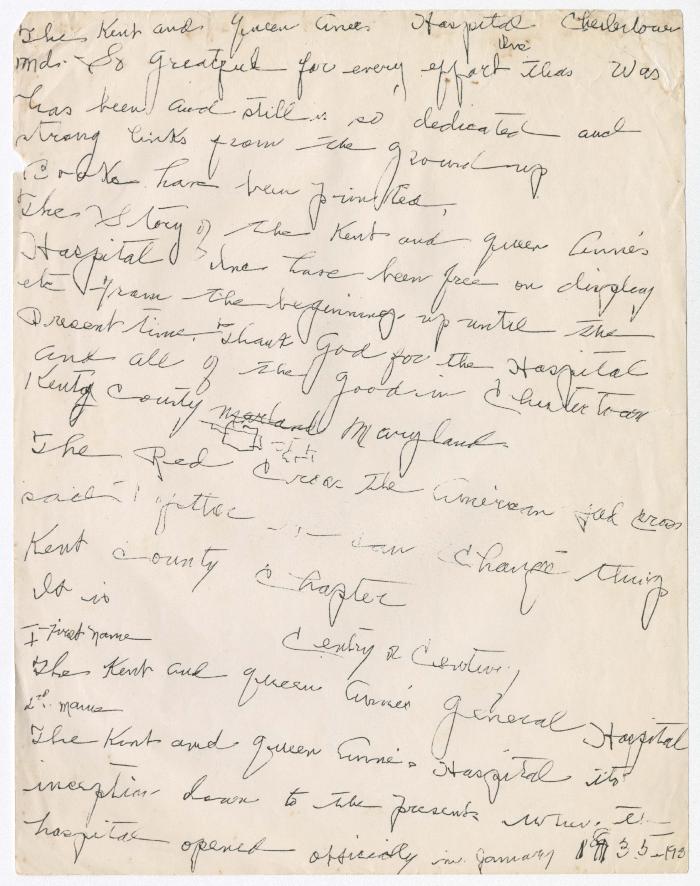 The Kent and Queen Annes Hospital Chestertown
Md. So Greatful for every effort the that Was
has been and still is so dedicated and
strong links from the ground up
Books have been printed.
The Story of the Kent and Queen Anne's
Hospital Inc have been free on display
etc from the beginning up until the
Present time. Thank God for the Hospital
and all of the good in Chestertown
Kent County Maryland
The Red Cross The American Red Cross
said together we can Change thing
Kent County Chapter
It is
1 First Name Century
The Kent and Queen Anne's General Hospital
2nd. Name
The Kent and Queen Anne's Hospital its
inception down to the present when the
hospital opened officialy in January 1935